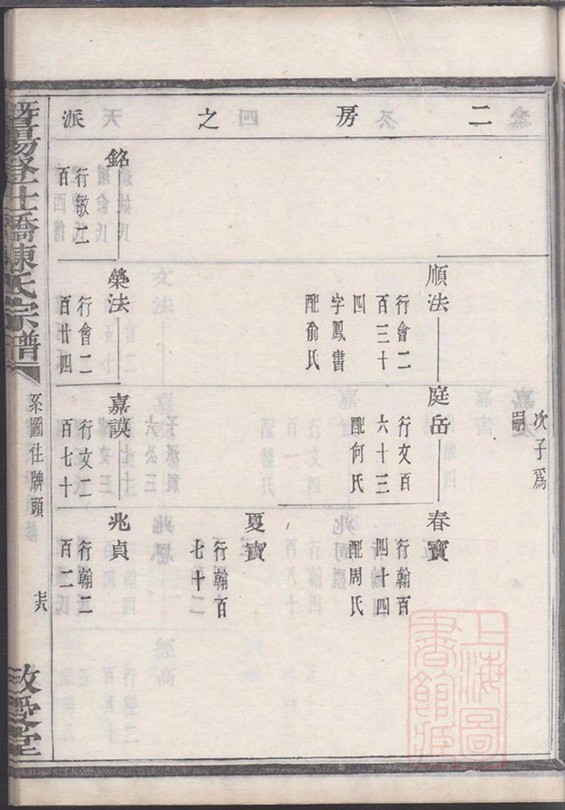 二房之派
次子爲
嗣
順法
行會二
百三十
四
字鳳書
配俞氏
庭岳
行文百
六十三
配何氏
春寶
行翰百
四十四
配周氏
夏寶
行翰百
七十一
銘
行敏二
百
榮法
行會二
百廿四
嘉謨
行文二
百七十
兆貞
行翰二
百二
暨陽登仕橋陳氏宗譜
系圖仕牌頭
敘受堂
上海圖書館藏